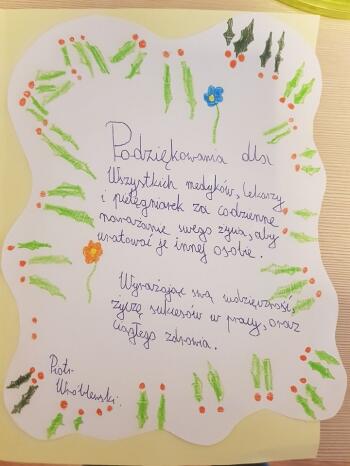 Podziękowania dla
Wszystkich medyków, lekarzy
i pielęgniarek za codzienne
narażanie swego życia, aby
uratować je innej osobie.
Wyrażając swą wdzięczność,
życzę sukcesów w pracy, oraz
ciągłego zdrowia.
Piotr
Wróblewski.